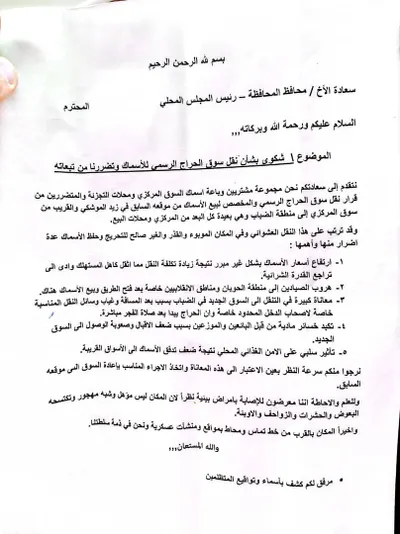 بسم لله الرحمن الرحيم
سعادة الأخ / محافظ المحافظة – رئيس المجلس المحلي
المحترم
السلام عليكم ورحمة الله وبركاته,,,
الموضوع \ شكوى بشأن نقل سوق الحراج الرسمي للأسماك وتضررنا من تبعاته
نتقدم إلى سعادتكم نحن مجموعة مشتريين وباعة اسماك السوق المركزي ومحلات التجزئة والمتضررين من
قرار نقل سوق الحراج الرسمي والمخصص لبيع الأسماك من موقعه السابق في زيد الموشكي والقريب من
سوق المركزي إلى منطقة الضباب وهي بعيدة كل البعد من المركزي ومحلات البيع.
وقد ترتب على هذا النقل العشوائي وفي المكان الموبوء والقذر والغير صالح للتحريج وحفظ الأسماك عدة
اضرار منها وأهمها :
١- ارتفاع أسعار الأسماك بشكل غير مبرر نتيجة زيادة تكلفة النقل مما اثقل كاهل المستهلك وادى الى
تراجع القدرة الشرائية.
٢- هروب الصيادين إلى منطقة الحوبان ومناطق الانقلابيين خاصة بعد فتح الطريق وبيع الأسماك هناك.
٣- معاناة كبيرة في التنقل الى السوق الجديد في الضباب بسبب بعد المسافة وغياب وسائل النقل المناسبة
خاصة لاصحاب الدخل المحدود خاصة وان الحراج يبدا بعد صلاة الفجر مباشرة.
٤- تكبد خسائر مادية من قبل البائعين والموزعين بسبب ضعف الاقبال وصعوبة الوصول الى السوق
الجديد.
٥- تأثير سلبي على الامن الغذائي المحلي نتيجة ضعف تدفق الأسماك الى الأسواق القريبة.
نرجوا منكم سرعة النظر بعين الاعتبار الى هذه المعاناة واتخاذ الاجراء المناسب بإعادة السوق الى موقعه
السابق.
وللعلم والاحاطة اننا معرضون للإصابة بامراض بيئية نظراً لان المكان ليس مؤهل وشبه مهجور وتكتسحه
البعوض والحشرات والزواحف والاوبئة.
واخيراً المكان بالقرب من خط تماس ومحاط بمواقع ومنشآت عسكرية ونحن في ذمة سلطتنا.
والله المستعان,,,
• مرفق لكم كشف بأسماء وتواقيع المتظلمين